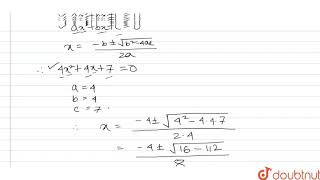 ax²+bx
x = -b±√b²-4ac / 2a
∴ 4x²+4x+7=0
a=4
b=4
c=7
∴ x = -4±√4²-4.4.7 / 2.4
= -4±√16-112
doubtnut